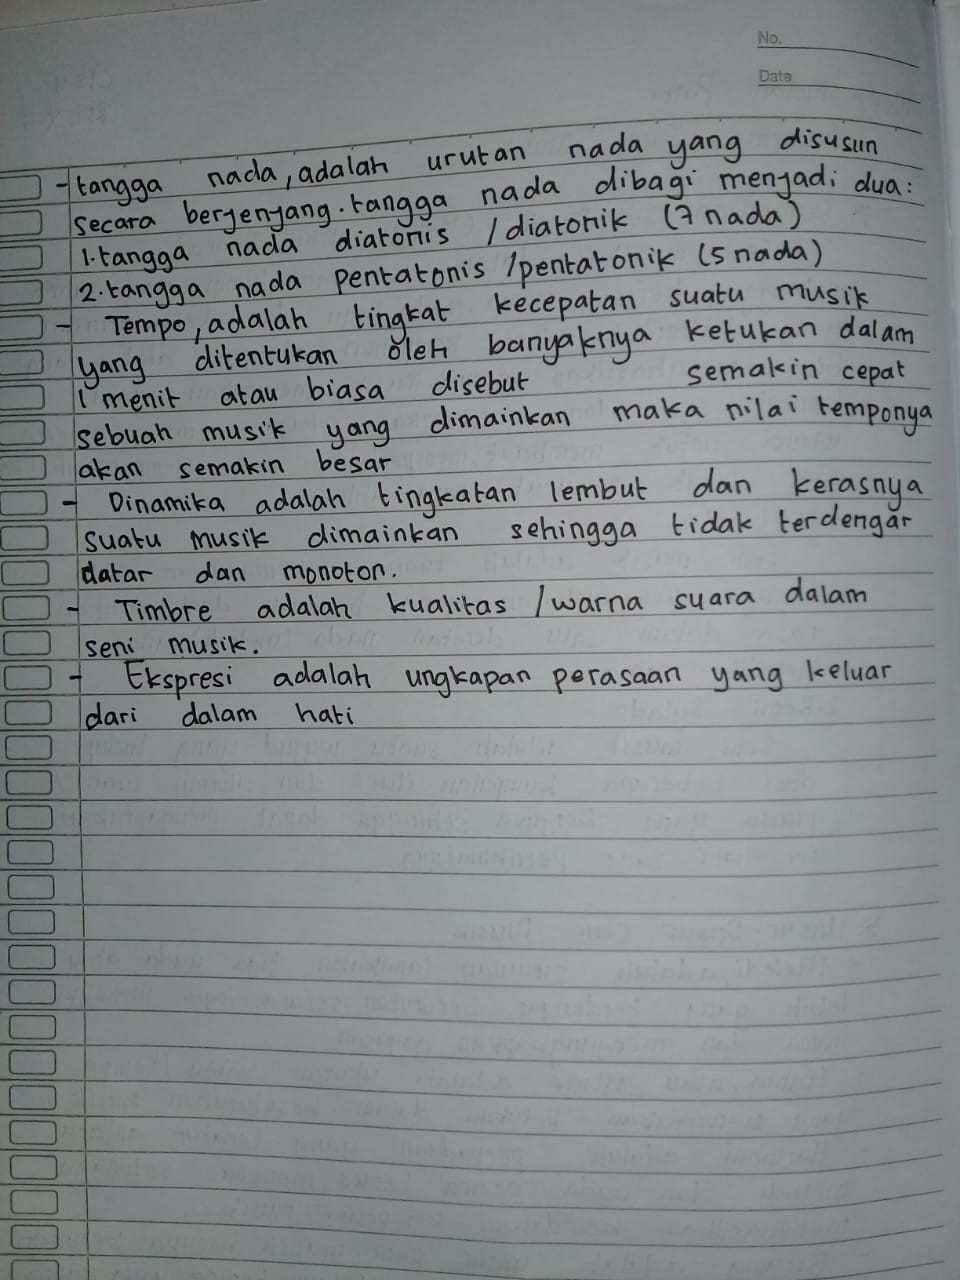 No.
Date
- tangga nada, adalah urutan nada yang disusun
secara berjenjang. tangga nada dibagi menjadi dua:
1. tangga nada diatonis / diatonik (7 nada)
2. tangga nada pentatonis / pentatonik (5 nada)
- Tempo, adalah tingkat kecepatan suatu musik
yang ditentukan oleh banyaknya ketukan dalam
1 menit atau biasa disebut semakin cepat
sebuah musik yang dimainkan maka nilai temponya
akan semakin besar
- Dinamika adalah tingkatan lembut dan kerasnya
suatu musik dimainkan sehingga tidak terdengar
datar dan monoton.
- Timbre adalah kualitas / warna suara dalam
seni musik.
- Ekspresi adalah ungkapan perasaan yang keluar
dari dalam hati